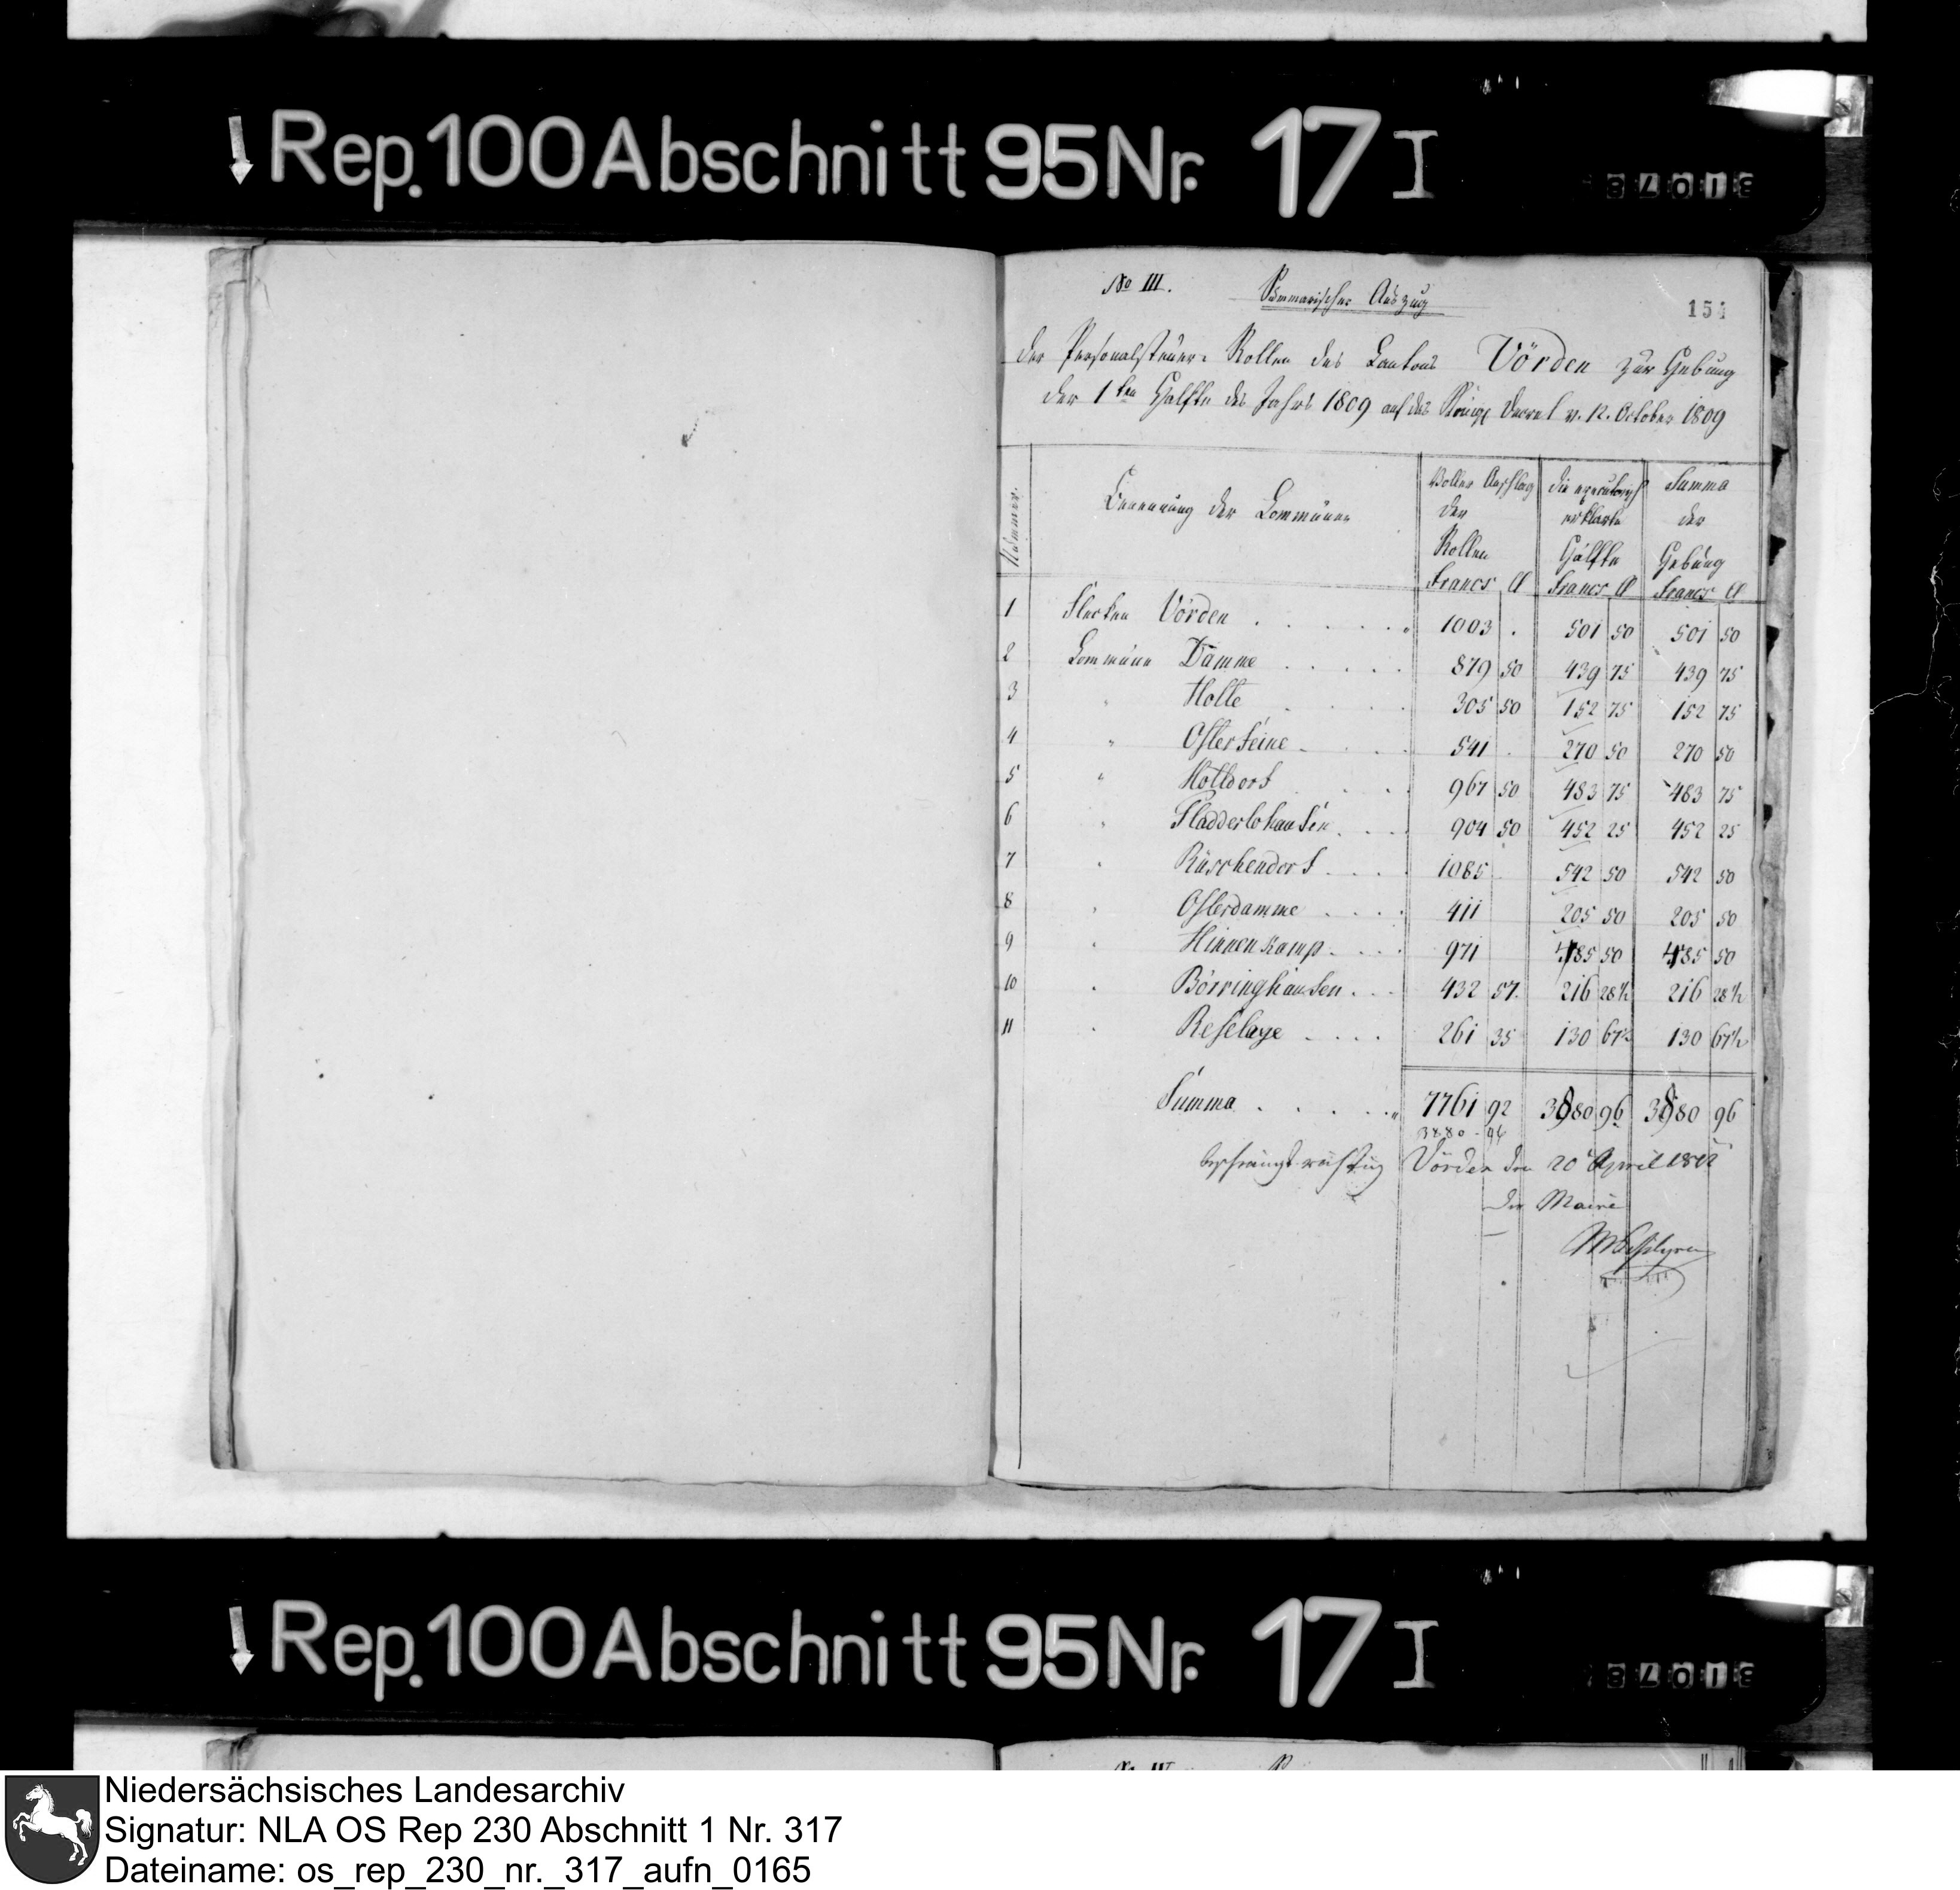 Rep. 100 Abschnitt 95 Nr. 17 I
No III. Summarischer Auszug
151
der Personalsteuer-Rollen des Cantons Vörden zur Hebung
der 1ten Hälfte des Jahrs 1809 auf das Königl Decret v. 12. October 1809
Nummer. Benennung der Commünen Voller Anschlag der Rollen Francs Ct die executorisch erklärte Hälfte Francs Ct Summa der Hebung Francs Ct
1 Flecken Vörden . . . . . . 1003 . 501 50 501 50
2 Commüne Damme . . . . . 879 50 439 75 439 75
3 " Holte . . . . 305 50 152 75 152 75
4 " Osterfeine . . . . 541 . 270 50 270 50
5 " Holtdorf . . . 967 50 483 75 483 75
6 " Fladderlohausen . . . 904 50 452 25 452 25
7 " Rüschendorf . . . . 1085 542 50 542 50
8 " Osterdamme . . . . 411 205 50 205 50
9 " Hinnenkamp . . . . 971 485 50 485 50
10 " Börringhausen . . . 432 57. 216 28½ 216 28½
11 " Reselage . . . . 261 35 130 67½ 130 67½
Summa . . . . . . 7761 92 3880 96 3880 96
3880 - 96
Vörden den 20 April 1812
Der Maire
Rep. 100 Abschnitt 95 Nr. 17 I
Niedersächsisches Landesarchiv
Signatur: NLA OS Rep 230 Abschnitt 1 Nr. 317
Dateiname: os_rep_230_nr._317_aufn_0165